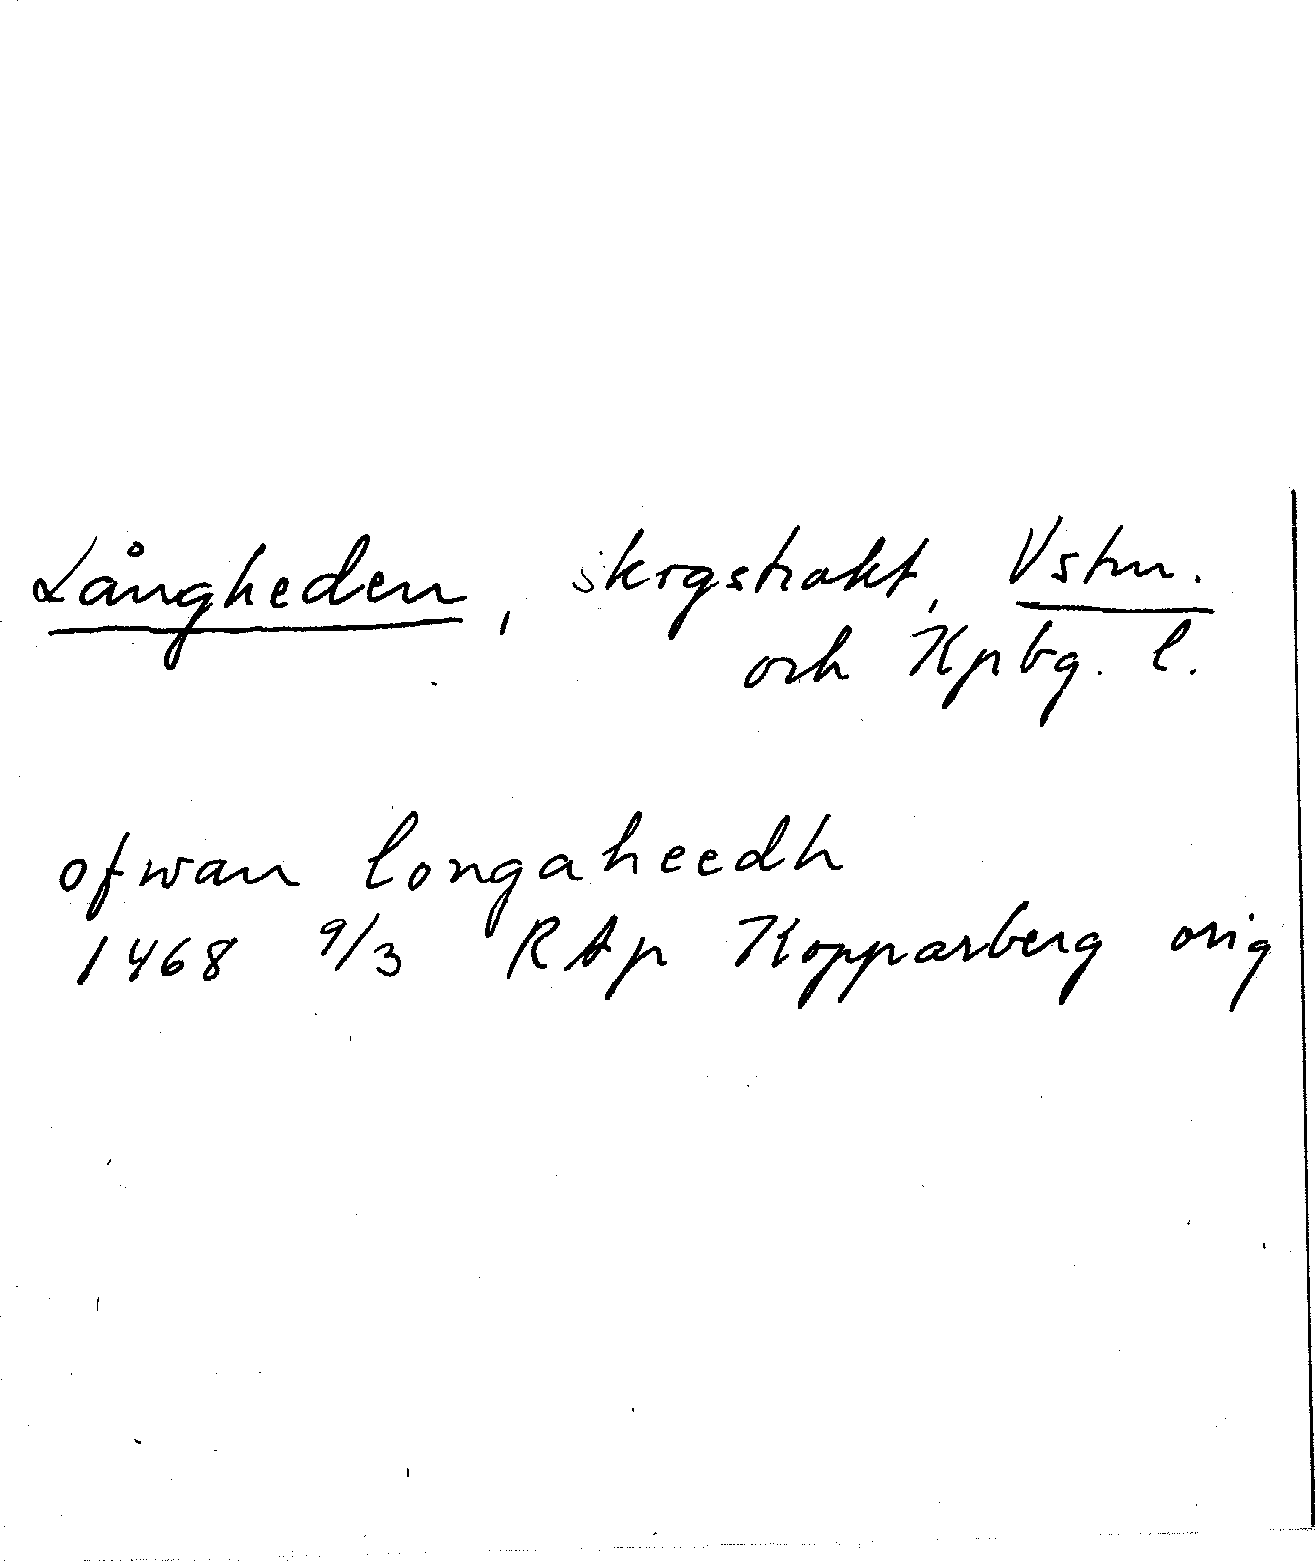 Långheden, skogstrakt, Vstm.
och Kpbg. l.
ofwan longaheedh
1468 9/3 RAp Kopparberg orig